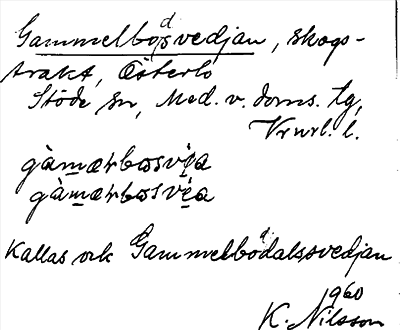 Gammelbodsvedjan, skogs-
trakt, Österlo
Stöde sn, Med. v. doms. tg,
Vrnrl. l.
gàmærbosvéa
gàmærbosvèa
Kallas ock Gammelbodalssvedjan
1960
K. Nilsson